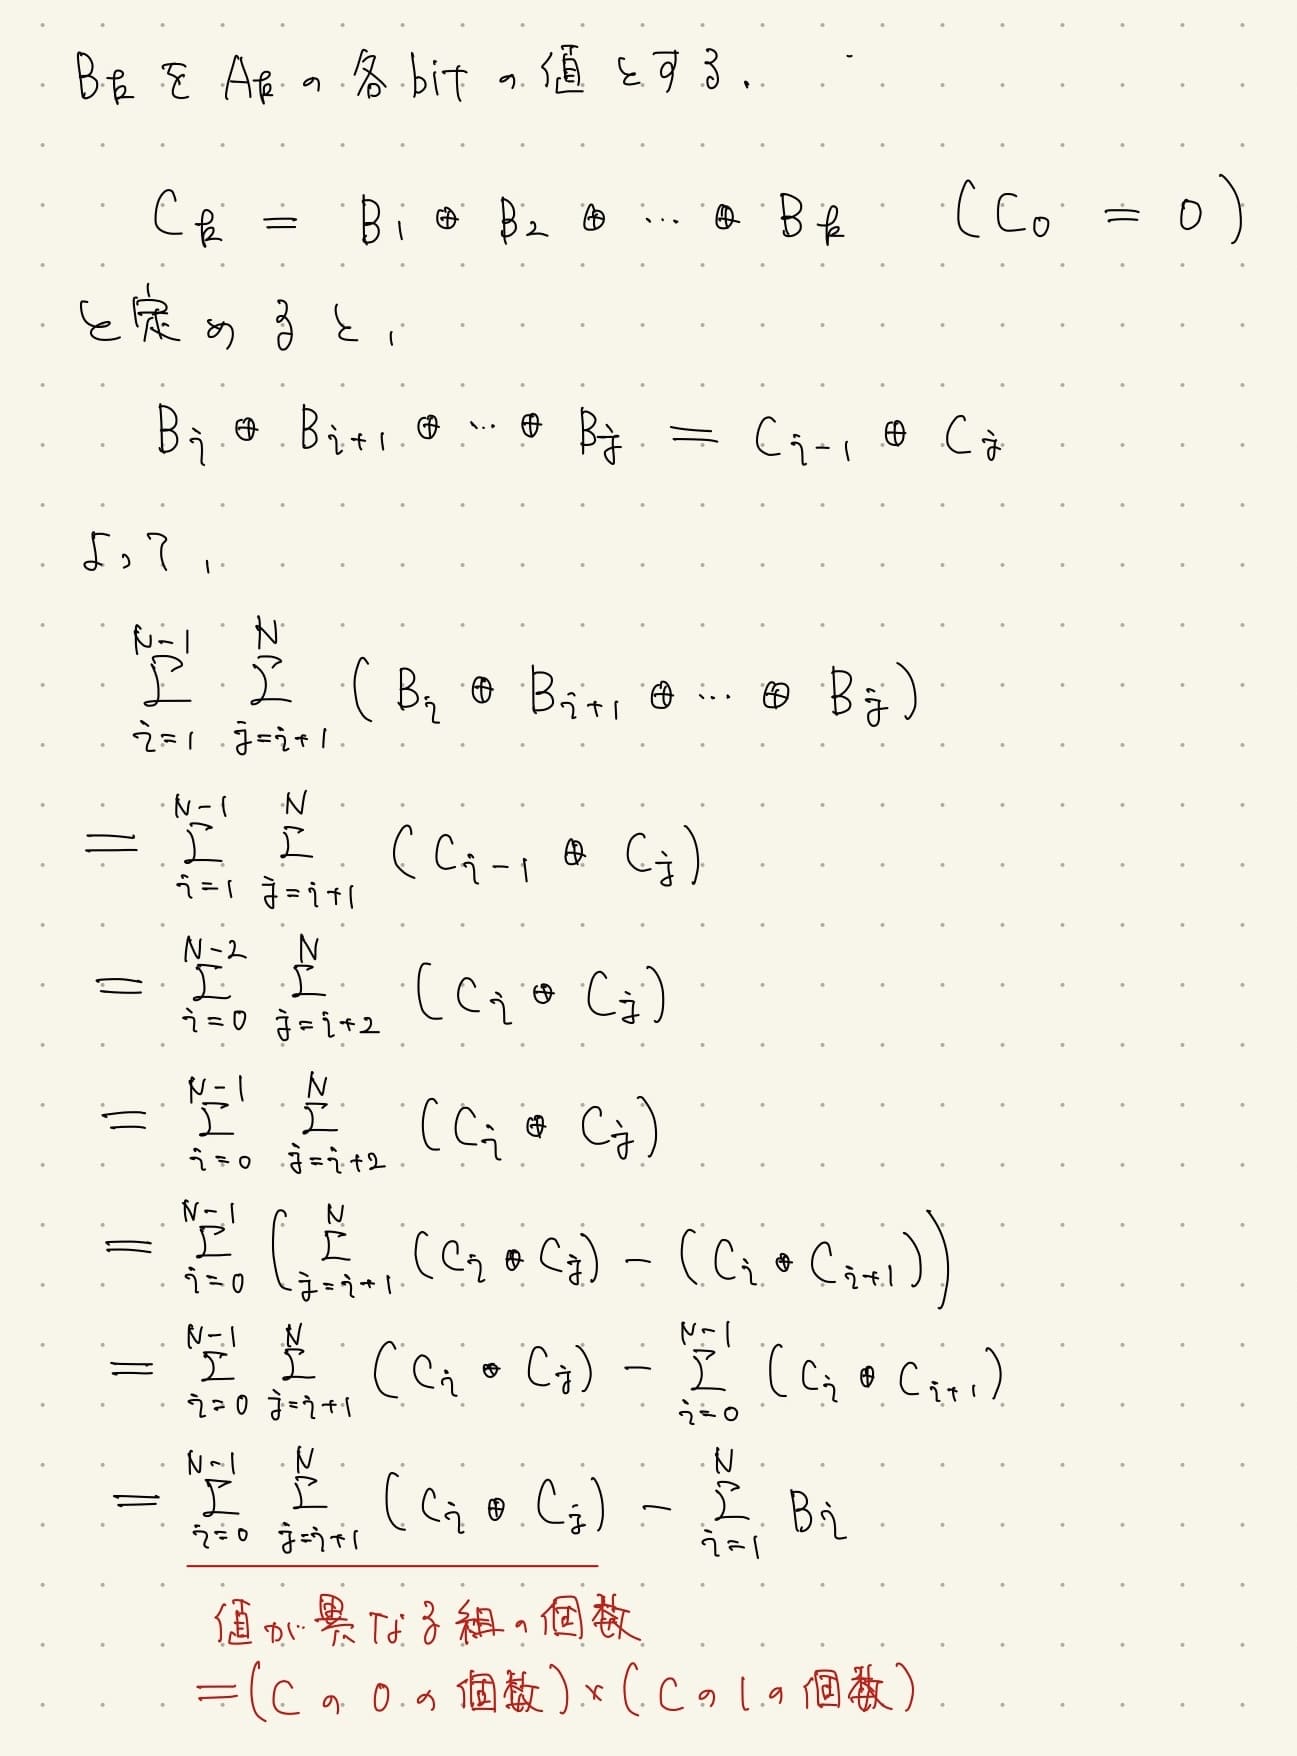 B_k を A_k の 各 bit の 値 とする.
C_k = B_1 ⊕ B_2 ⊕ … ⊕ B_k (C_0 = 0)
と定めると,
B_i ⊕ B_{i+1} ⊕ … ⊕ B_j = C_{i-1} ⊕ C_j
よって,
Σ_{i=1}^{N-1} Σ_{j=i+1}^{N} (B_i ⊕ B_{i+1} ⊕ … ⊕ B_j)
= Σ_{i=1}^{N-1} Σ_{j=i+1}^{N} (C_{i-1} ⊕ C_j)
= Σ_{i=0}^{N-2} Σ_{j=i+2}^{N} (C_i ⊕ C_j)
= Σ_{i=0}^{N-1} Σ_{j=i+2}^{N} (C_i ⊕ C_j)
= Σ_{i=0}^{N-1} (Σ_{j=i+1}^{N} (C_i ⊕ C_j) - (C_i ⊕ C_{i+1}))
= Σ_{i=0}^{N-1} Σ_{j=i+1}^{N} (C_i ⊕ C_j) - Σ_{i=0}^{N-1} (C_i ⊕ C_{i+1})
= Σ_{i=0}^{N-1} Σ_{j=i+1}^{N} (C_i ⊕ C_j) - Σ_{i=1}^{N} B_i
値が異なる組の個数
= (Cの0の個数) × (Cの1の個数)